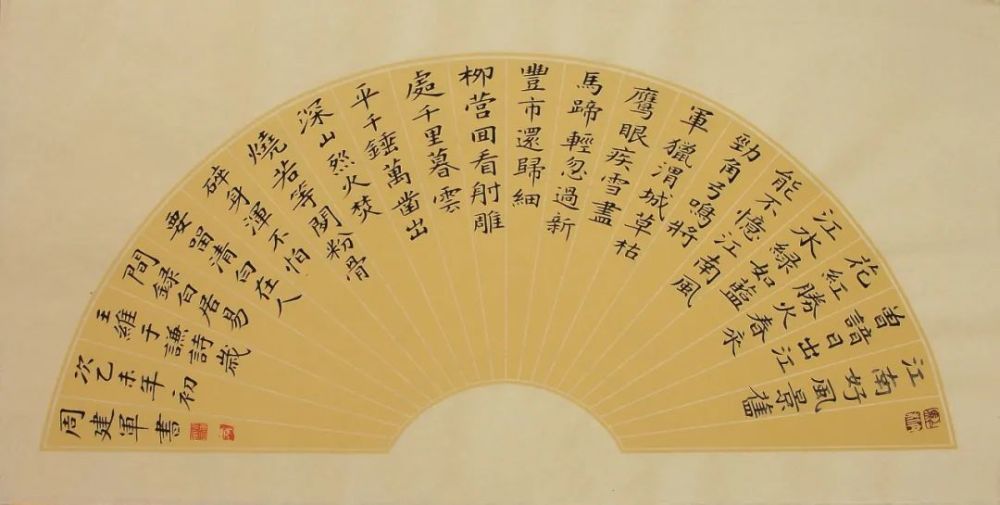 江南好風景舊
曾諳日出江
花紅勝火春永
江水綠如藍
能不憶江南風
勁角弓鳴將
軍獵渭城草枯
鷹眼疾雪盡
馬蹄輕忽過新
豐市還歸細
柳營回看射雕
處千里暮雲
平千錘萬鑿出
深山烈火焚
燒若等閑粉骨
碎身渾不怕
要留清白在人
間錄白居易
王維于謙詩歲
次乙未年初
周建軍書